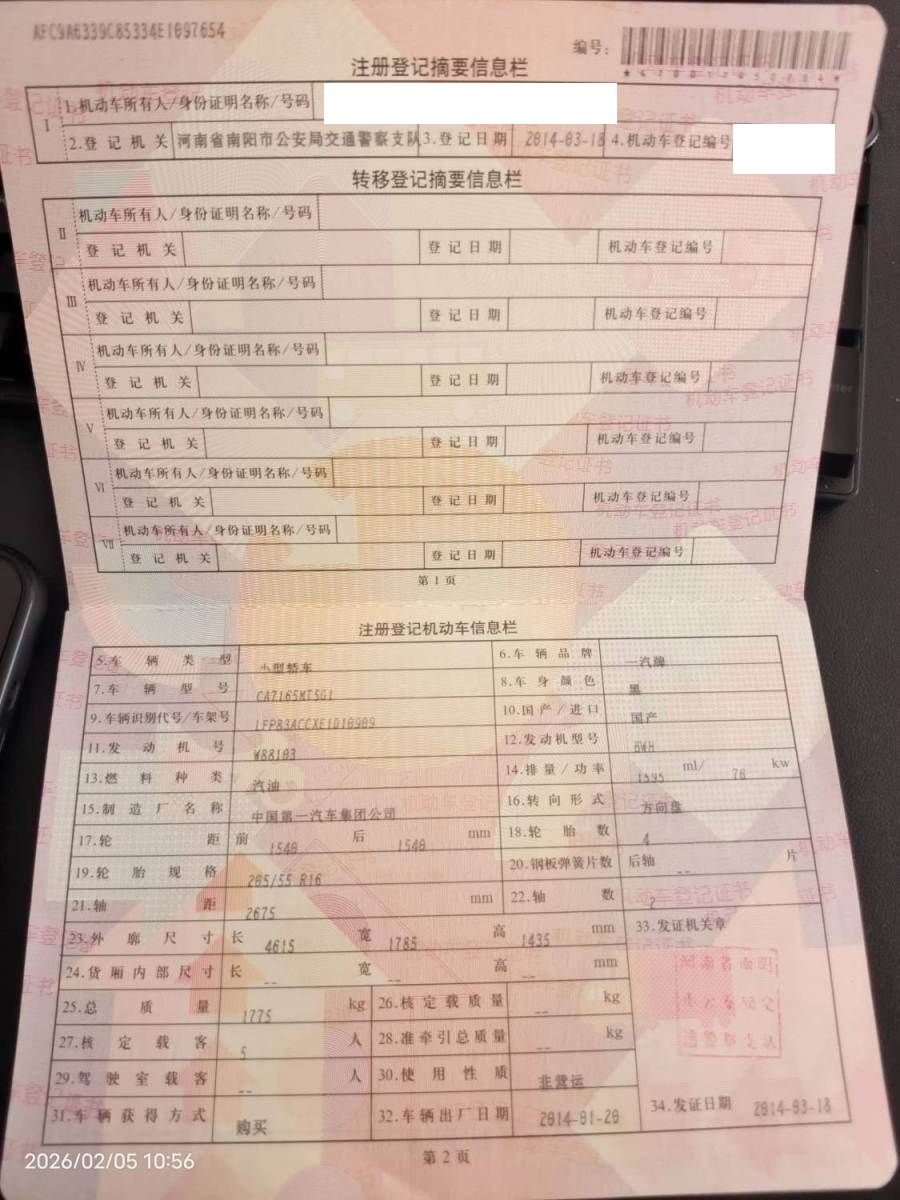 AFC9A6339C85334E1097654
编号:
注册登记摘要信息栏
Ⅰ 1.机动车所有人/身份证明名称/号码
2.登记机关 河南省南阳市公安局交通警察支队 3.登记日期 2014-03-18 4.机动车登记编号
转移登记摘要信息栏
Ⅱ 机动车所有人/身份证明名称/号码
登记机关 登记日期 机动车登记编号
Ⅲ 机动车所有人/身份证明名称/号码
登记机关 登记日期 机动车登记编号
Ⅳ 机动车所有人/身份证明名称/号码
登记机关 登记日期 机动车登记编号
Ⅴ 机动车所有人/身份证明名称/号码
登记机关 登记日期 机动车登记编号
Ⅵ 机动车所有人/身份证明名称/号码
登记机关 登记日期 机动车登记编号
Ⅶ 机动车所有人/身份证明名称/号码
登记机关 登记日期 机动车登记编号
第1页
注册登记机动车信息栏
5.车辆类型 小型轿车 6.车辆品牌 一汽牌
7.车辆型号 CA7165MT5G1 8.车身颜色 黑
9.车辆识别代号/车架号 LFPB3ACCXE1D10909 10.国产/进口 国产
11.发动机号 W88103 12.发动机型号 BWH
13.燃料种类 汽油 14.排量/功率 1595 ml/ 76 kw
15.制造厂名称 中国第一汽车集团公司 16.转向形式 方向盘
17.轮距 前 1540 后 1540 mm 18.轮胎数 4
19.轮胎规格 205/55 R16 20.钢板弹簧片数 后轴 -- 片
21.轴距 2675 mm 22.轴数 2
23.外廓尺寸 长 4615 宽 1785 高 1435 mm 33.发证机关章
24.货厢内部尺寸 长 -- 宽 -- 高 -- mm
25.总质量 1775 kg 26.核定载质量 -- kg
27.核定载客 5 人 28.准牵引总质量 -- kg
29.驾驶室载客 -- 人 30.使用性质 非营运
31.车辆获得方式 购买 32.车辆出厂日期 2014-01-20 34.发证日期 2014-03-18
第2页
2026/02/05 10:56